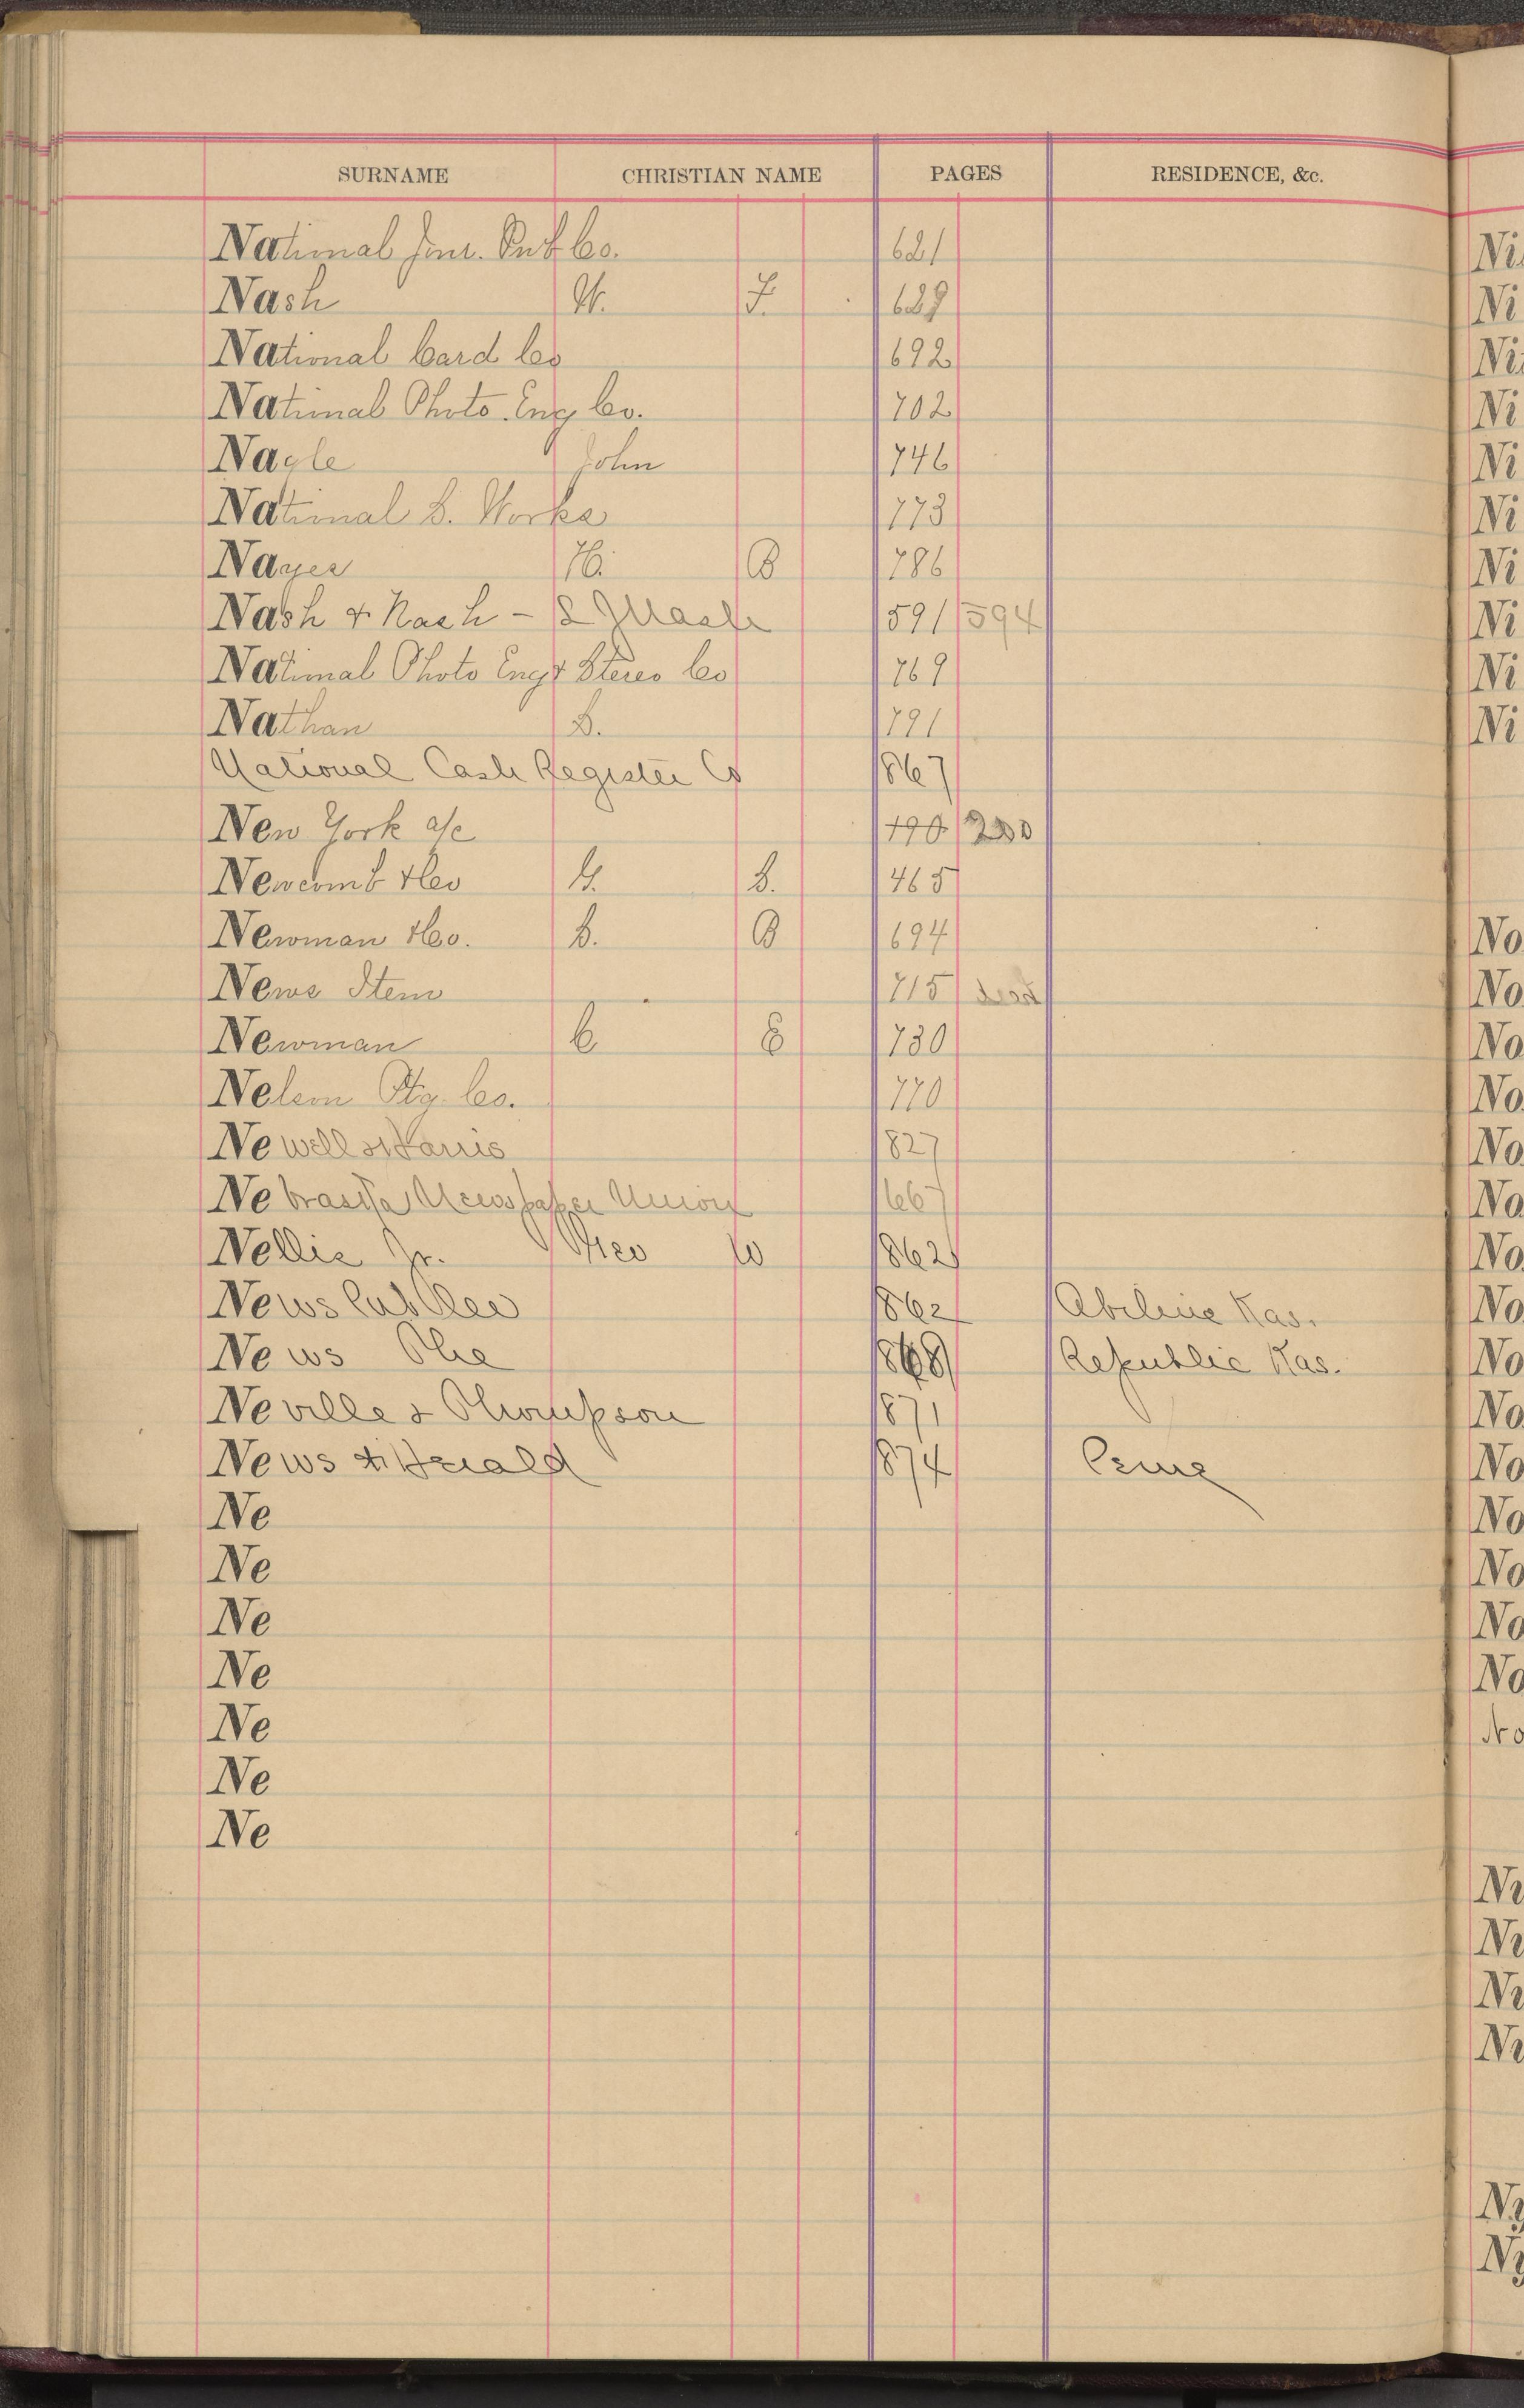 SURNAME CHRISTIAN NAME PAGES RESIDENCE, &c.
National Jour. Pub Co. 621
Nash W. F. 689
National Card Co 692
National Photo. Eng Co. 702
Nagle John 746
National C. Works 773
Nayes H. B 786
Nash & Nash - 591 594
National Photo Eng & Stereo Co 769
Nathan S. 791
National Cash Register Co 867
New York a/c 190 200
Newcomb & Co G. S. 465
Newman & Co. C. B 694
News Item 715 dead
Newman C E 730
Nelson Ptg. Co. 770
Newell & Harris 827
Nebraska Newspaper Union 667
Nellis Jr. Geo W 862
News Pub Co 862 Abilene Kas.
News The 868 Republic Kas.
Neville & Thompson 871
News & Herald 874 Peru
Ne
Ne
Ne
Ne
Ne
Ne
Ne
Ni
Ni
Ni
Ni
Ni
Ni
Ni
Ni
Ni
Ni
No
No
No
No
No
No
No
No
No
No
No
No
No
No
No
No
Nu
Nu
Nu
Nu
Ny
Ny